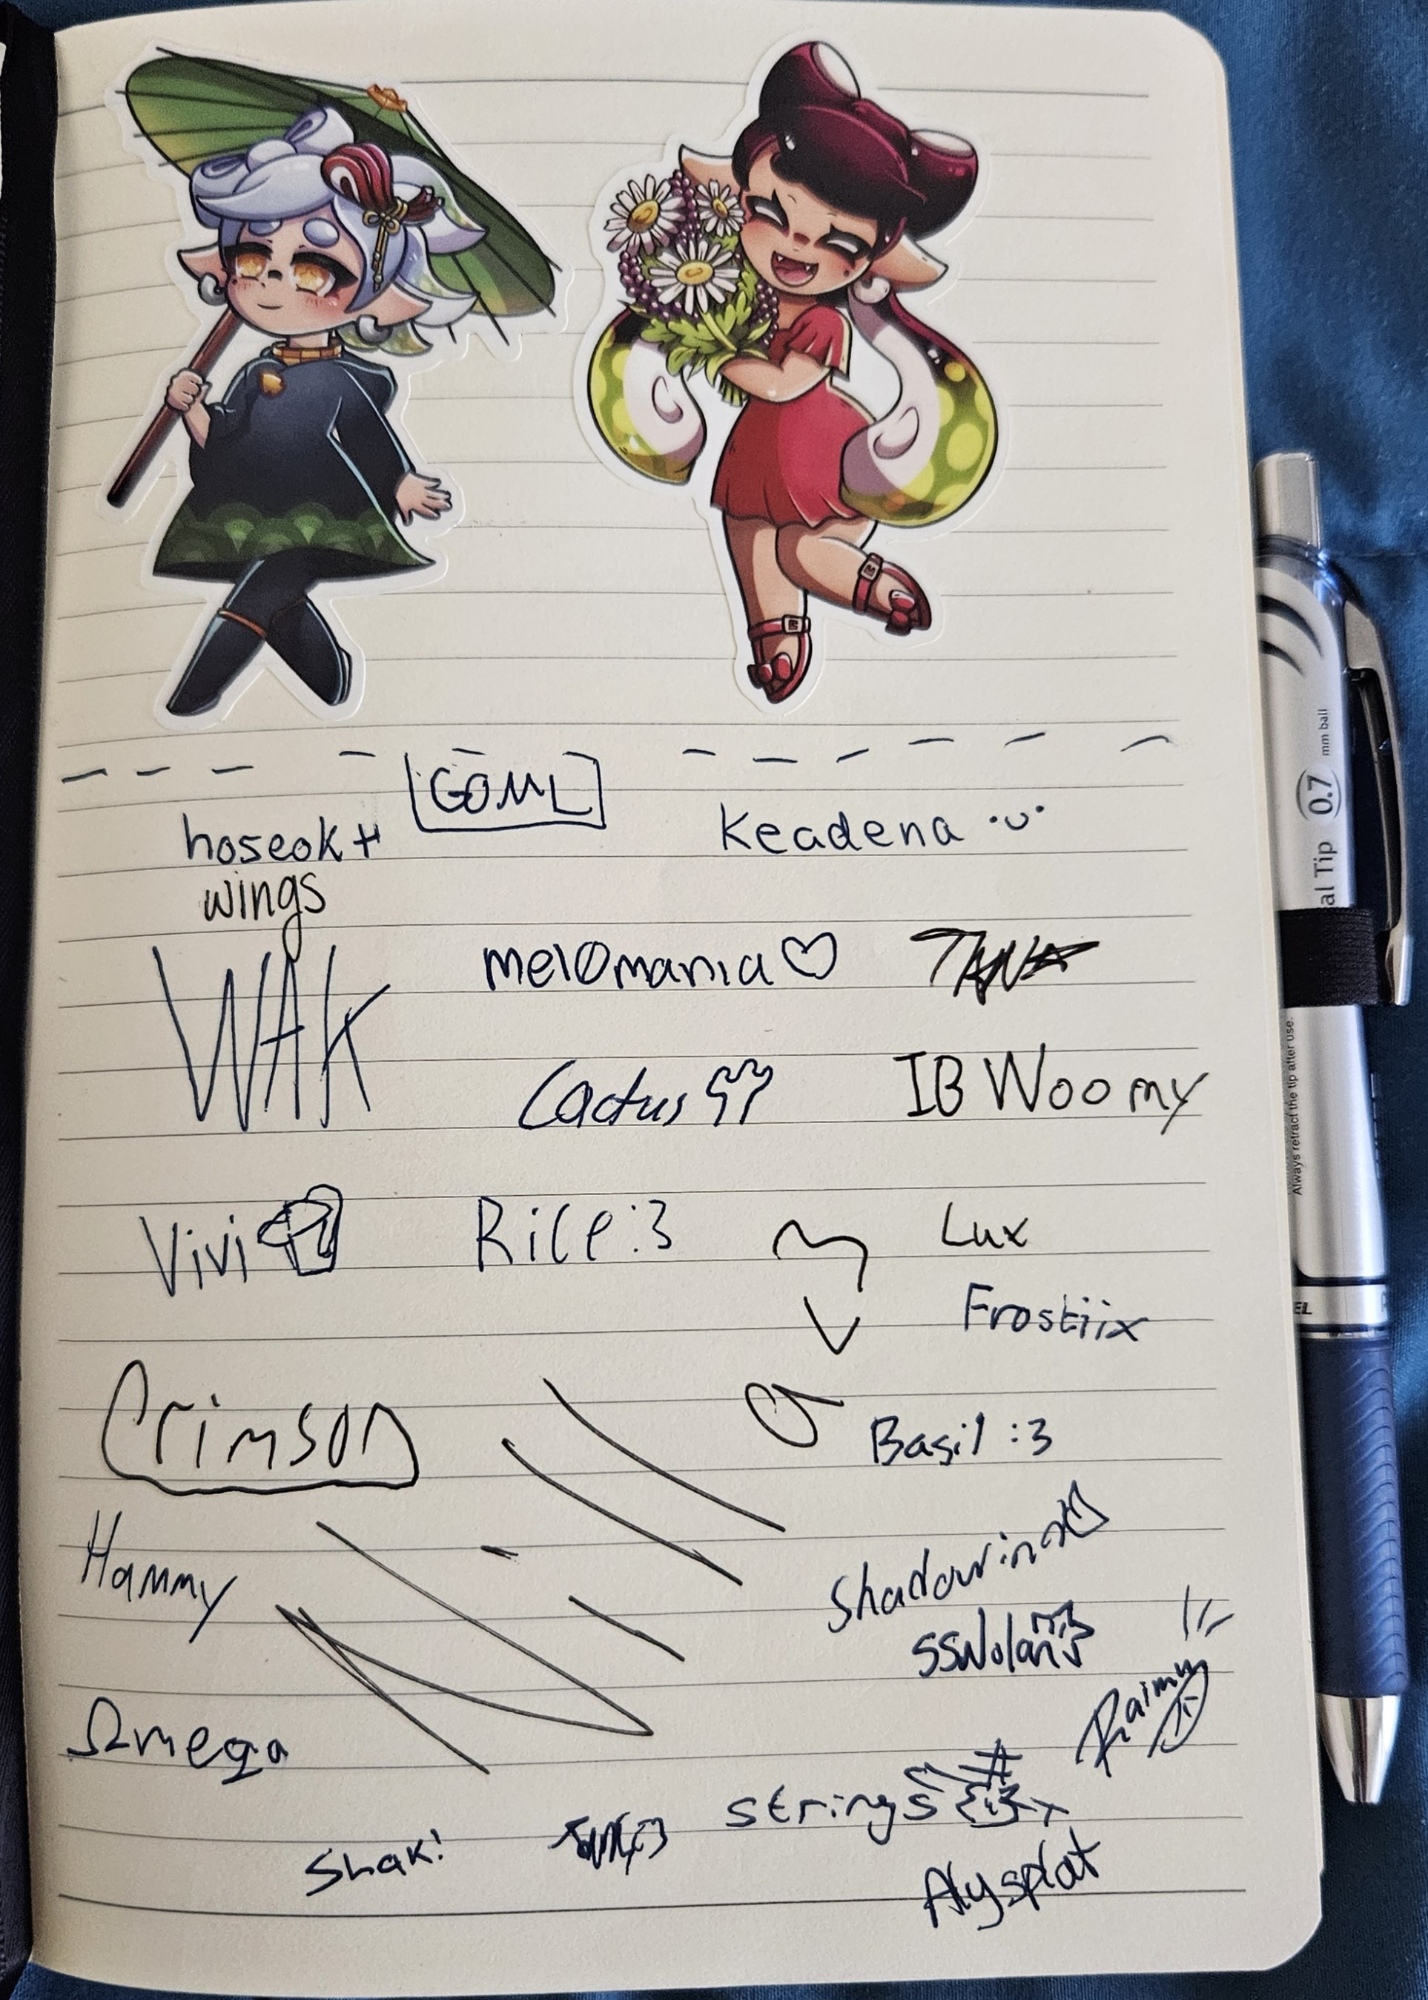 GOML
hoseok +
wings
Keadena
WAK
melomania ♡
Cactus
IB Woomy
Vivi
Rice :3
Lux
Frostiix
Crimson
Basil :3
Hammy
SSNolan
Raimy
Ωmega
strings
Shak!
Alysplat
al Tip 0.7 mm ball
Always retract the tip after use.
EL